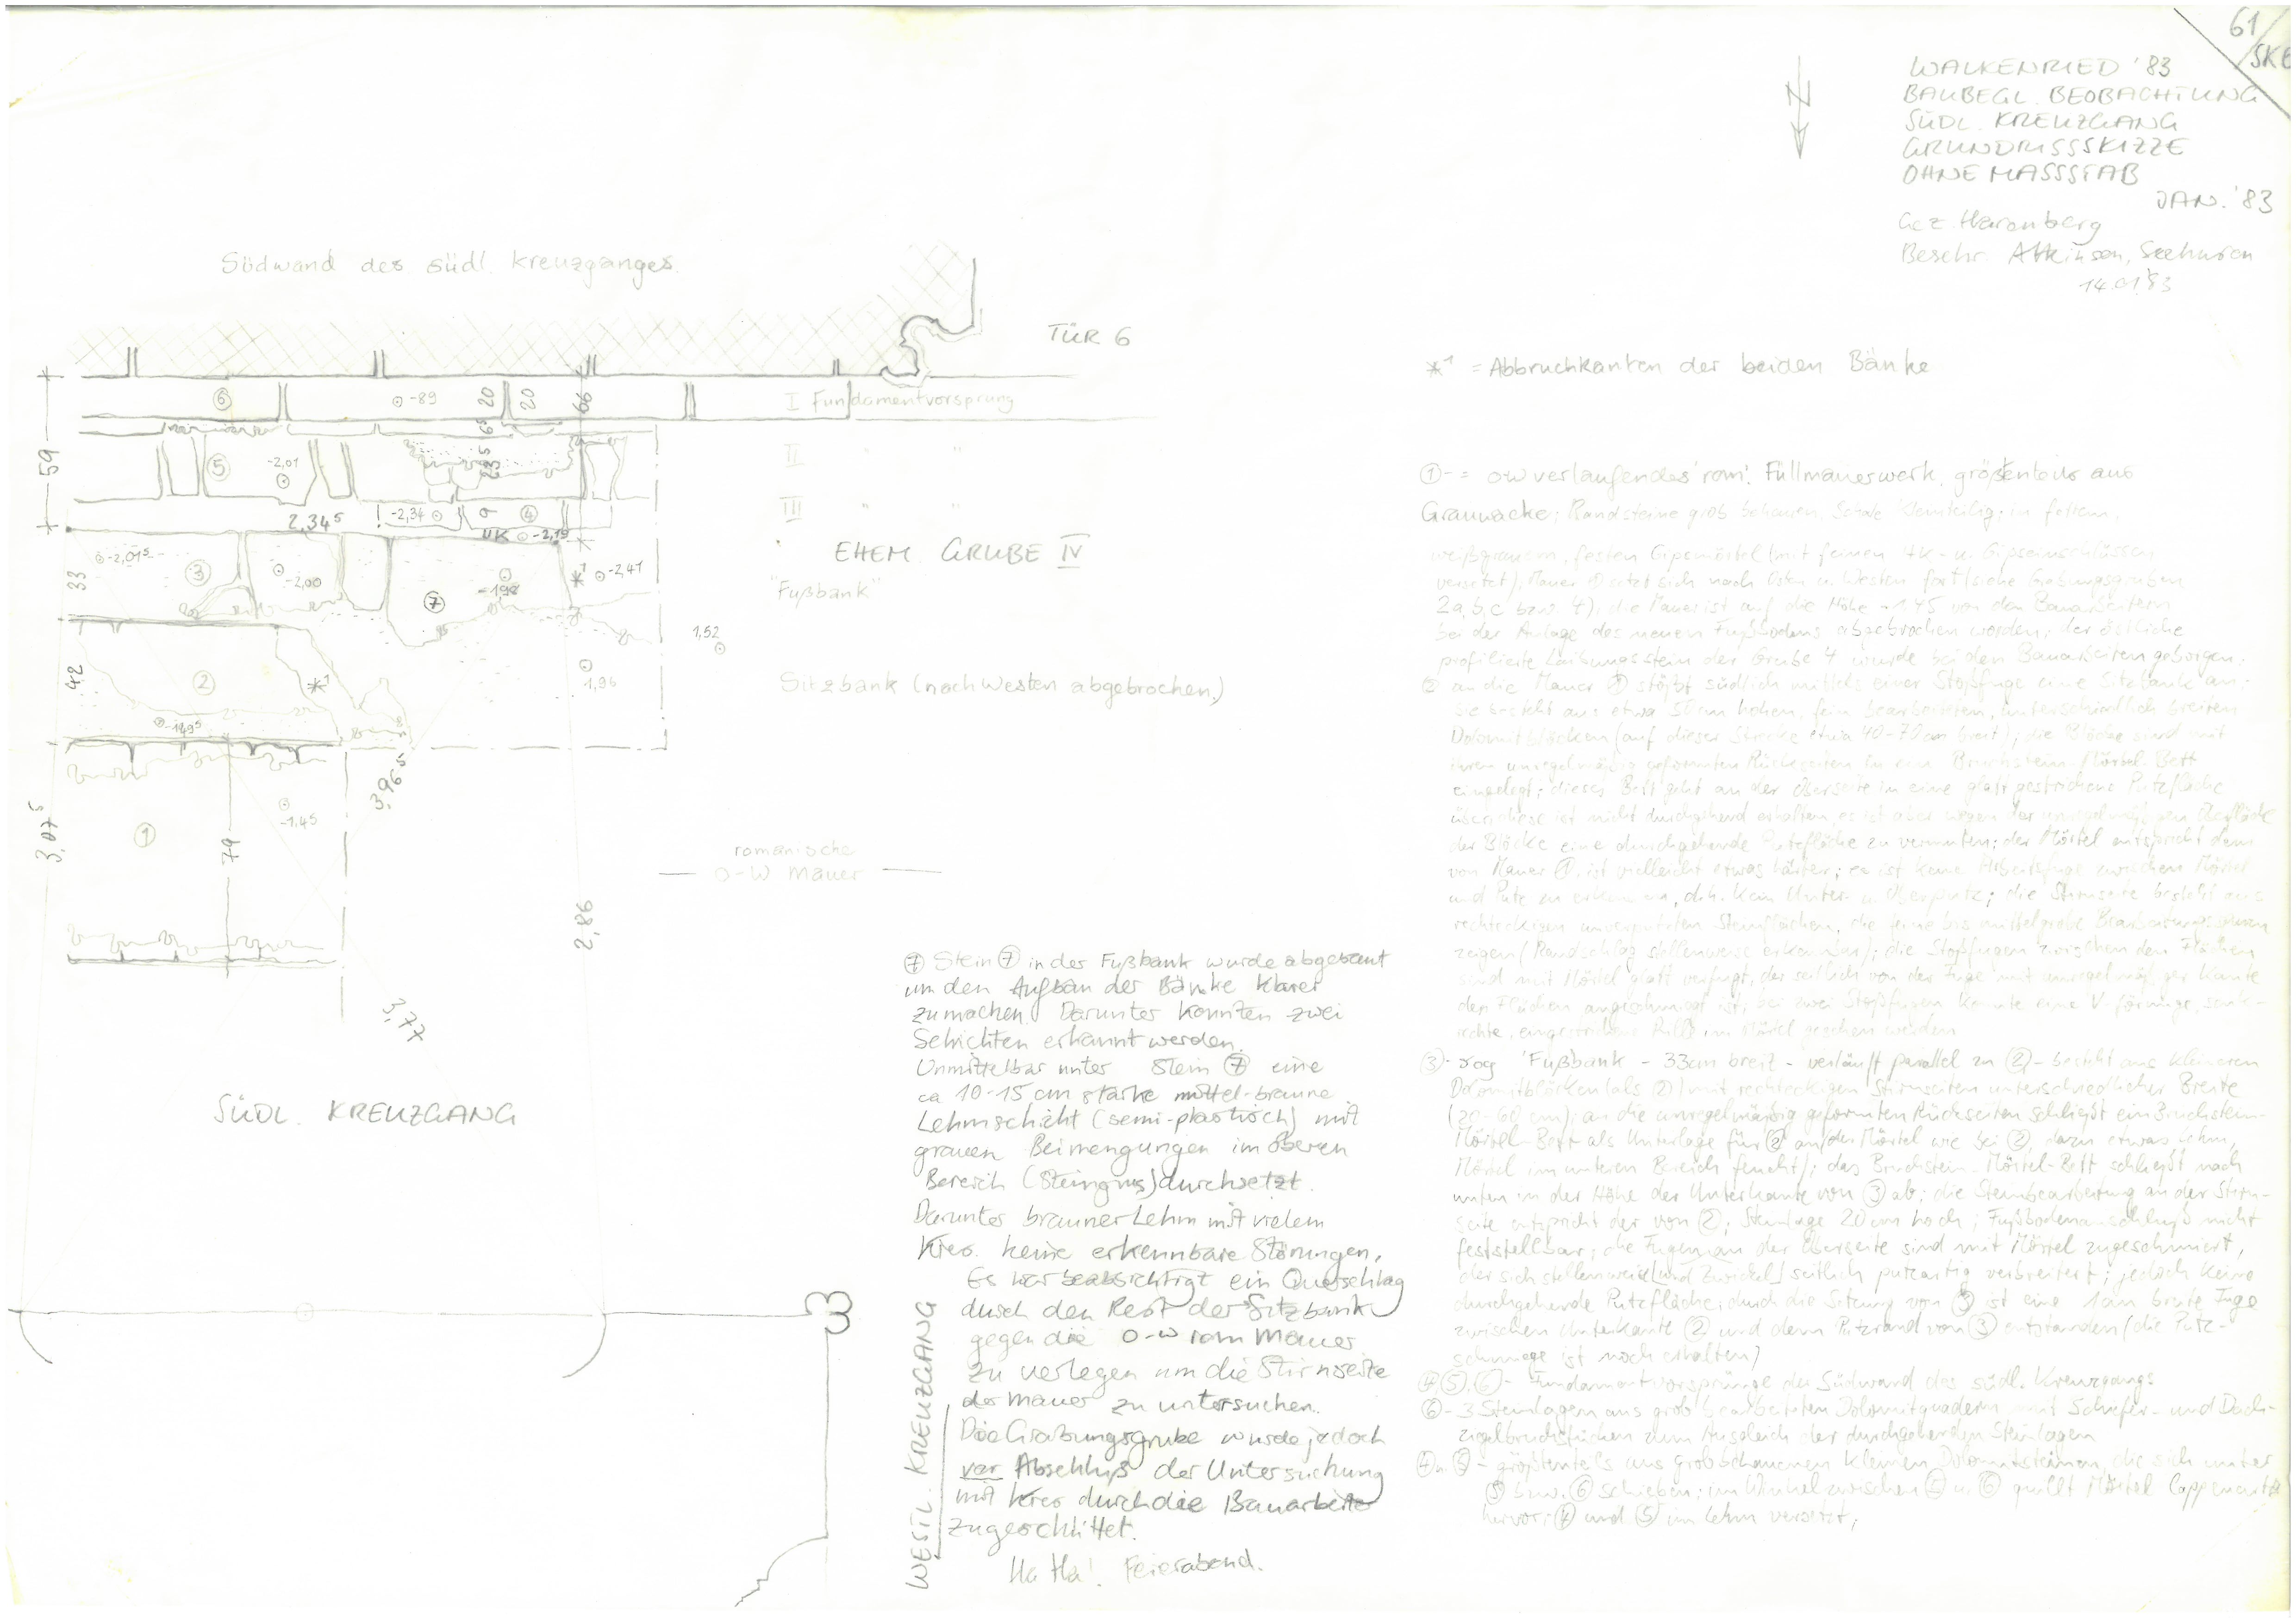 61/SKE
WALKENRIED '83
BAUBEGL. BEOBACHTUNG
SÜDL. KREUZGANG
GRUNDRISSSKIZZE
OHNE MASSSTAB
JAN. '83
Gez. Haronberg
Beschr. Atkinson,
14.01.83
N
Südwand des südl. Kreuzganges
TÜR 6
*1 = Abbruchkanten der beiden Bänke
⑥ -89 20 20 66 I Fundamentvorsprung
59
⑤ -2,01 6⁵ 23⁵ II " "
2,34⁵ -2,34 9 ④ III " "
UK -2,19
EHEM. GRUBE IV
-2,01⁵ ③ -2,00 -198 *1 -2,41
33
"Fußbank"
⑦
1,52
42 ② *1 1,96
Sitzbank (nach Westen abgebrochen)
-149⁵
3,96⁵
3,07⁵ ① 79 -1.45
romanische
O-W Mauer
2,86
3,77
SÜDL. KREUZGANG
3
WESTL. KREUZGANG
⑦ Stein ⑦ in der Fußbank wurde abgebaut
um den Aufbau der Bänke klarer
zu machen. Darunter konnten zwei
Schichten erkannt werden.
Unmittelbar unter Stein ⑦ eine
ca 10-15 cm starke mittel-braune
Lehmschicht (semi-plastisch) mit
grauen Beimengungen im oberen
Bereich (Steingrus) durchsetzt.
Darunter brauner Lehm mit vielem
Kies. keine erkennbare Störungen.
Es war beabsichtigt ein Querschlag
durch den Rest der Sitzbank
gegen die O-W rom Mauer
zu verlegen um die Stirnseite
der Mauer zu untersuchen.
Die Grabungsgrube wurde jedoch
vor Abschluß der Untersuchung
mit Kies durch die Bauarbeiter
zugeschüttet.
Ha Ha! Feierabend.
①- = ow verlaufendes 'rom'. Füllmauerwerk, größtenteils aus
Grauwacke; Randsteine grob behauen, kleinteilig; in
weißgrauem, festen Gipsmörtel (mit feinen HK- u. Gipseinschlüssen
versetzt). Mauer ① setzt sich nach Osten u. Westen fort (siehe Grabungsgruben
2a, b, c bzw 4), die Mauer ist auf die Höhe -1.45 von den Bauarbeitern
bei der Anlage des neuen Fußbodens abgebrochen worden, der östliche
profilierte Laibungsstein der Grube 4 wurde bei den Bauarbeiten geborgen.
② an die Mauer ① stößt südlich mittels einer Stoßfuge eine Sitzbank an.
Sie besteht aus etwa 50 cm hohen, fein bearbeiteten, unterschiedlich breiten
Dolomitblöcken (auf dieser Strecke etwa 40-70 cm breit); die Blöcke sind mit
ihren unregelmäßig geformten Rückseiten in ein Bruchstein-Mörtel-Bett
eingelegt; dieses Bett geht an der Oberseite in eine glatt gestrichene Putzfläche
über; diese ist nicht durchgehend erhalten, es ist aber wegen der unregelmäßigen Oberfläche
der Blöcke eine durchgehende Putzfläche zu vermuten; der Mörtel entspricht dem
von Mauer ①, ist vielleicht etwas härter; es ist keine Arbeitsfuge zwischen Mörtel
und Putz zu erkennen, d.h. kein Unter- u. Oberputz; die Stirnseite besteht aus
rechteckigen unverputzten Steinflächen, die feine bis mittelgrobe Bearbeitungsspuren
zeigen (Randschlag stellenweise erkennbar); die Stoßfugen zwischen den Flächen
sind mit Mörtel glatt verfugt, der seitlich von der Fuge mit unregelmäßiger Kante
den Flächen angeschmiegt ist, bei zwei Stoßfugen konnte eine V förmige, senk-
rechte, eingestrichene Rille im Mörtel gesehen werden
③- sog 'Fußbank - 33cm breit - verläuft parallel zu ② - besteht aus kleineren
Dolomitblöcken (als ②) mit rechteckigen Stirnseiten unterschiedlicher Breite
(20-60 cm); an die unregelmäßig geformten Rückseiten schließt ein Bruchstein-
Mörtel-Bett als Unterlage für ② an (der Mörtel wie bei ②, dazu etwas Lehm,
Mörtel im unteren Bereich feucht); das Bruchstein-Mörtel-Bett schließt nach
unten in der Höhe der Unterkante von ③ ab; die Steinbearbeitung an der Stirn-
seite entspricht der von ②; Steinlage 20 cm hoch; Fußbodenanschluß nicht
feststellbar; die Fugen an der Oberseite sind mit Mörtel zugeschmiert,
der sich stellenweise [und Zwickel] seitlich putzartig verbreitert; jedoch keine
durchgehende Putzfläche; durch die Setzung von ③ ist eine 1cm breite Fuge
zwischen Unterkante ② und dem Putzrand von ③ entstanden (die Putz-
schmiege ist noch erhalten)
④,⑤,⑥- Fundamentvorsprünge der Südwand des südl. Kreuzgangs
⑥- 3 Steinlagen aus grob bearbeiteten Dolomitquadern mit Schiefer- und Dach-
ziegelbruchstücken zum Ausgleich der durchgehenden Steinlagen
④ u. ⑤- größtenteils aus grob behauenen kleinen Dolomitsteinen, die sich unter
⑤ bzw. ⑥ schieben; im Winkel zwischen ⑤ u. ⑥ quillt Mörtel lappenartig
hervor; ④ und ⑤ im Lehm versetzt;